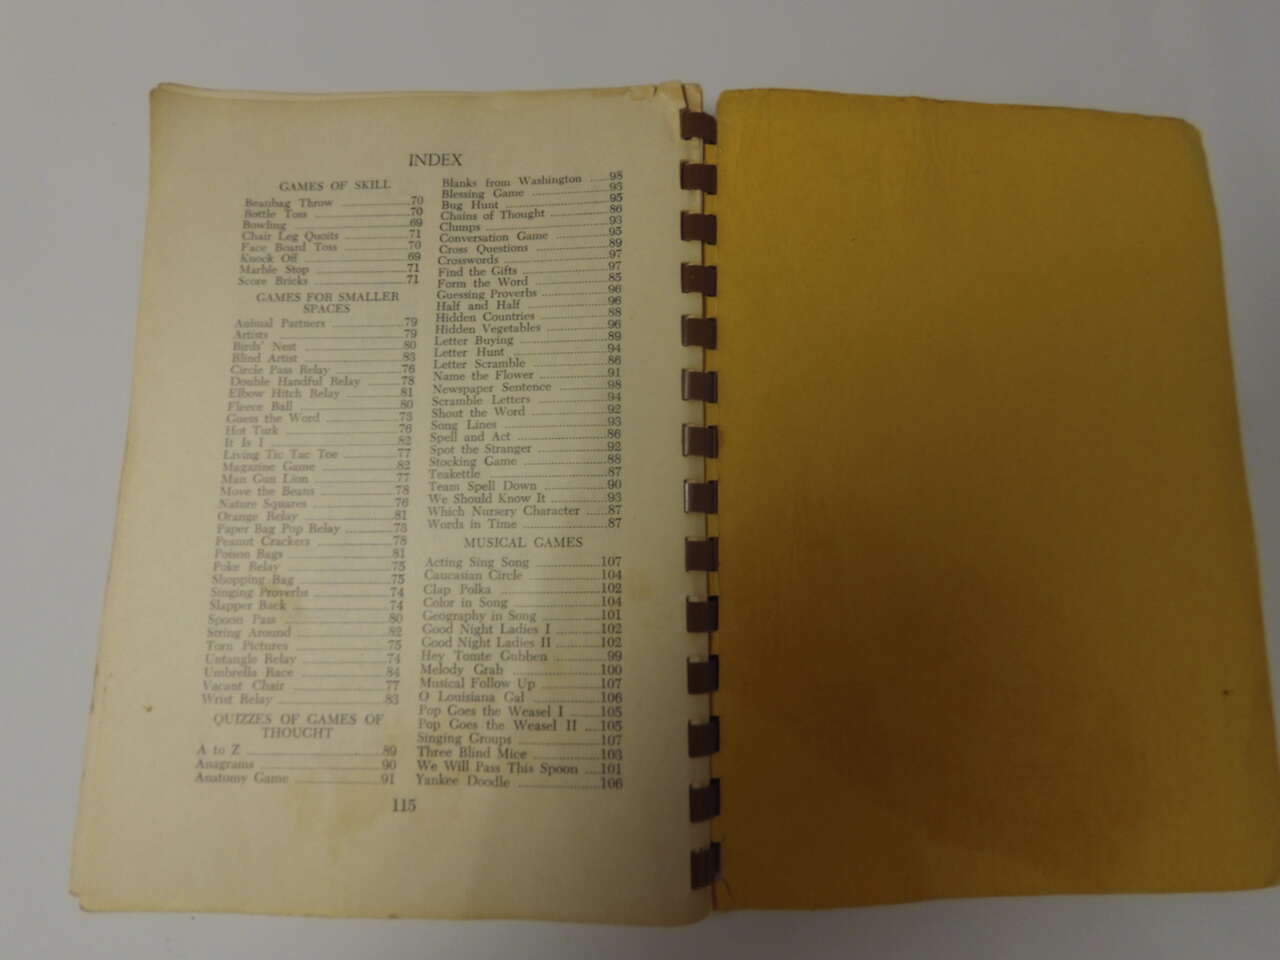 INDEX
GAMES OF SKILL
Beanbag Throw ........ 70
Bottle Toss ........ 70
Bowling ........ 69
Chair Leg Quoits ........ 71
Face Board Toss ........ 70
Knock Off ........ 69
Marble Stop ........ 71
Score Bricks ........ 71
GAMES FOR SMALLER
SPACES
Animal Partners ........ 79
Artists ........ 79
Birds' Nest ........ 80
Blind Artist ........ 83
Circle Pass Relay ........ 76
Double Handful Relay ........ 78
Elbow Hitch Relay ........ 81
Fleece Ball ........ 80
Guess the Word ........ 73
Hot Turk ........ 76
It Is I ........ 82
Living Tic Tac Toe ........ 77
Magazine Game ........ 82
Man Gun Lion ........ 77
Move the Beans ........ 78
Nature Squares ........ 76
Orange Relay ........ 81
Paper Bag Pop Relay ........ 73
Peanut Crackers ........ 78
Poison Bags ........ 81
Poke Relay ........ 75
Shopping Bag ........ 75
Singing Proverbs ........ 74
Slapper Back ........ 74
Spoon Pass ........ 80
String Around ........ 82
Torn Pictures ........ 75
Untangle Relay ........ 74
Umbrella Race ........ 84
Vacant Chair ........ 77
Wrist Relay ........ 83
QUIZZES OF GAMES OF
THOUGHT
A to Z ........ 89
Anagrams ........ 90
Anatomy Game ........ 91
Blanks from Washington ........ 98
Blessing Game ........ 93
Bug Hunt ........ 95
Chains of Thought ........ 86
Clumps ........ 93
Conversation Game ........ 95
Cross Questions ........ 89
Crosswords ........ 97
Find the Gifts ........ 97
Form the Word ........ 85
Guessing Proverbs ........ 96
Half and Half ........ 96
Hidden Countries ........ 88
Hidden Vegetables ........ 96
Letter Buying ........ 89
Letter Hunt ........ 94
Letter Scramble ........ 86
Name the Flower ........ 91
Newspaper Sentence ........ 98
Scramble Letters ........ 94
Shout the Word ........ 92
Song Lines ........ 93
Spell and Act ........ 86
Spot the Stranger ........ 92
Stocking Game ........ 88
Teakettle ........ 87
Team Spell Down ........ 90
We Should Know It ........ 93
Which Nursery Character ........ 87
Words in Time ........ 87
MUSICAL GAMES
Acting Sing Song ........ 107
Caucasian Circle ........ 104
Clap Polka ........ 102
Color in Song ........ 104
Geography in Song ........ 101
Good Night Ladies I ........ 102
Good Night Ladies II ........ 102
Hey Tomte Gubben ........ 99
Melody Grab ........ 100
Musical Follow Up ........ 107
O Louisiana Gal ........ 106
Pop Goes the Weasel I ........ 105
Pop Goes the Weasel II ........ 105
Singing Groups ........ 107
Three Blind Mice ........ 103
We Will Pass This Spoon ........ 101
Yankee Doodle ........ 106
115